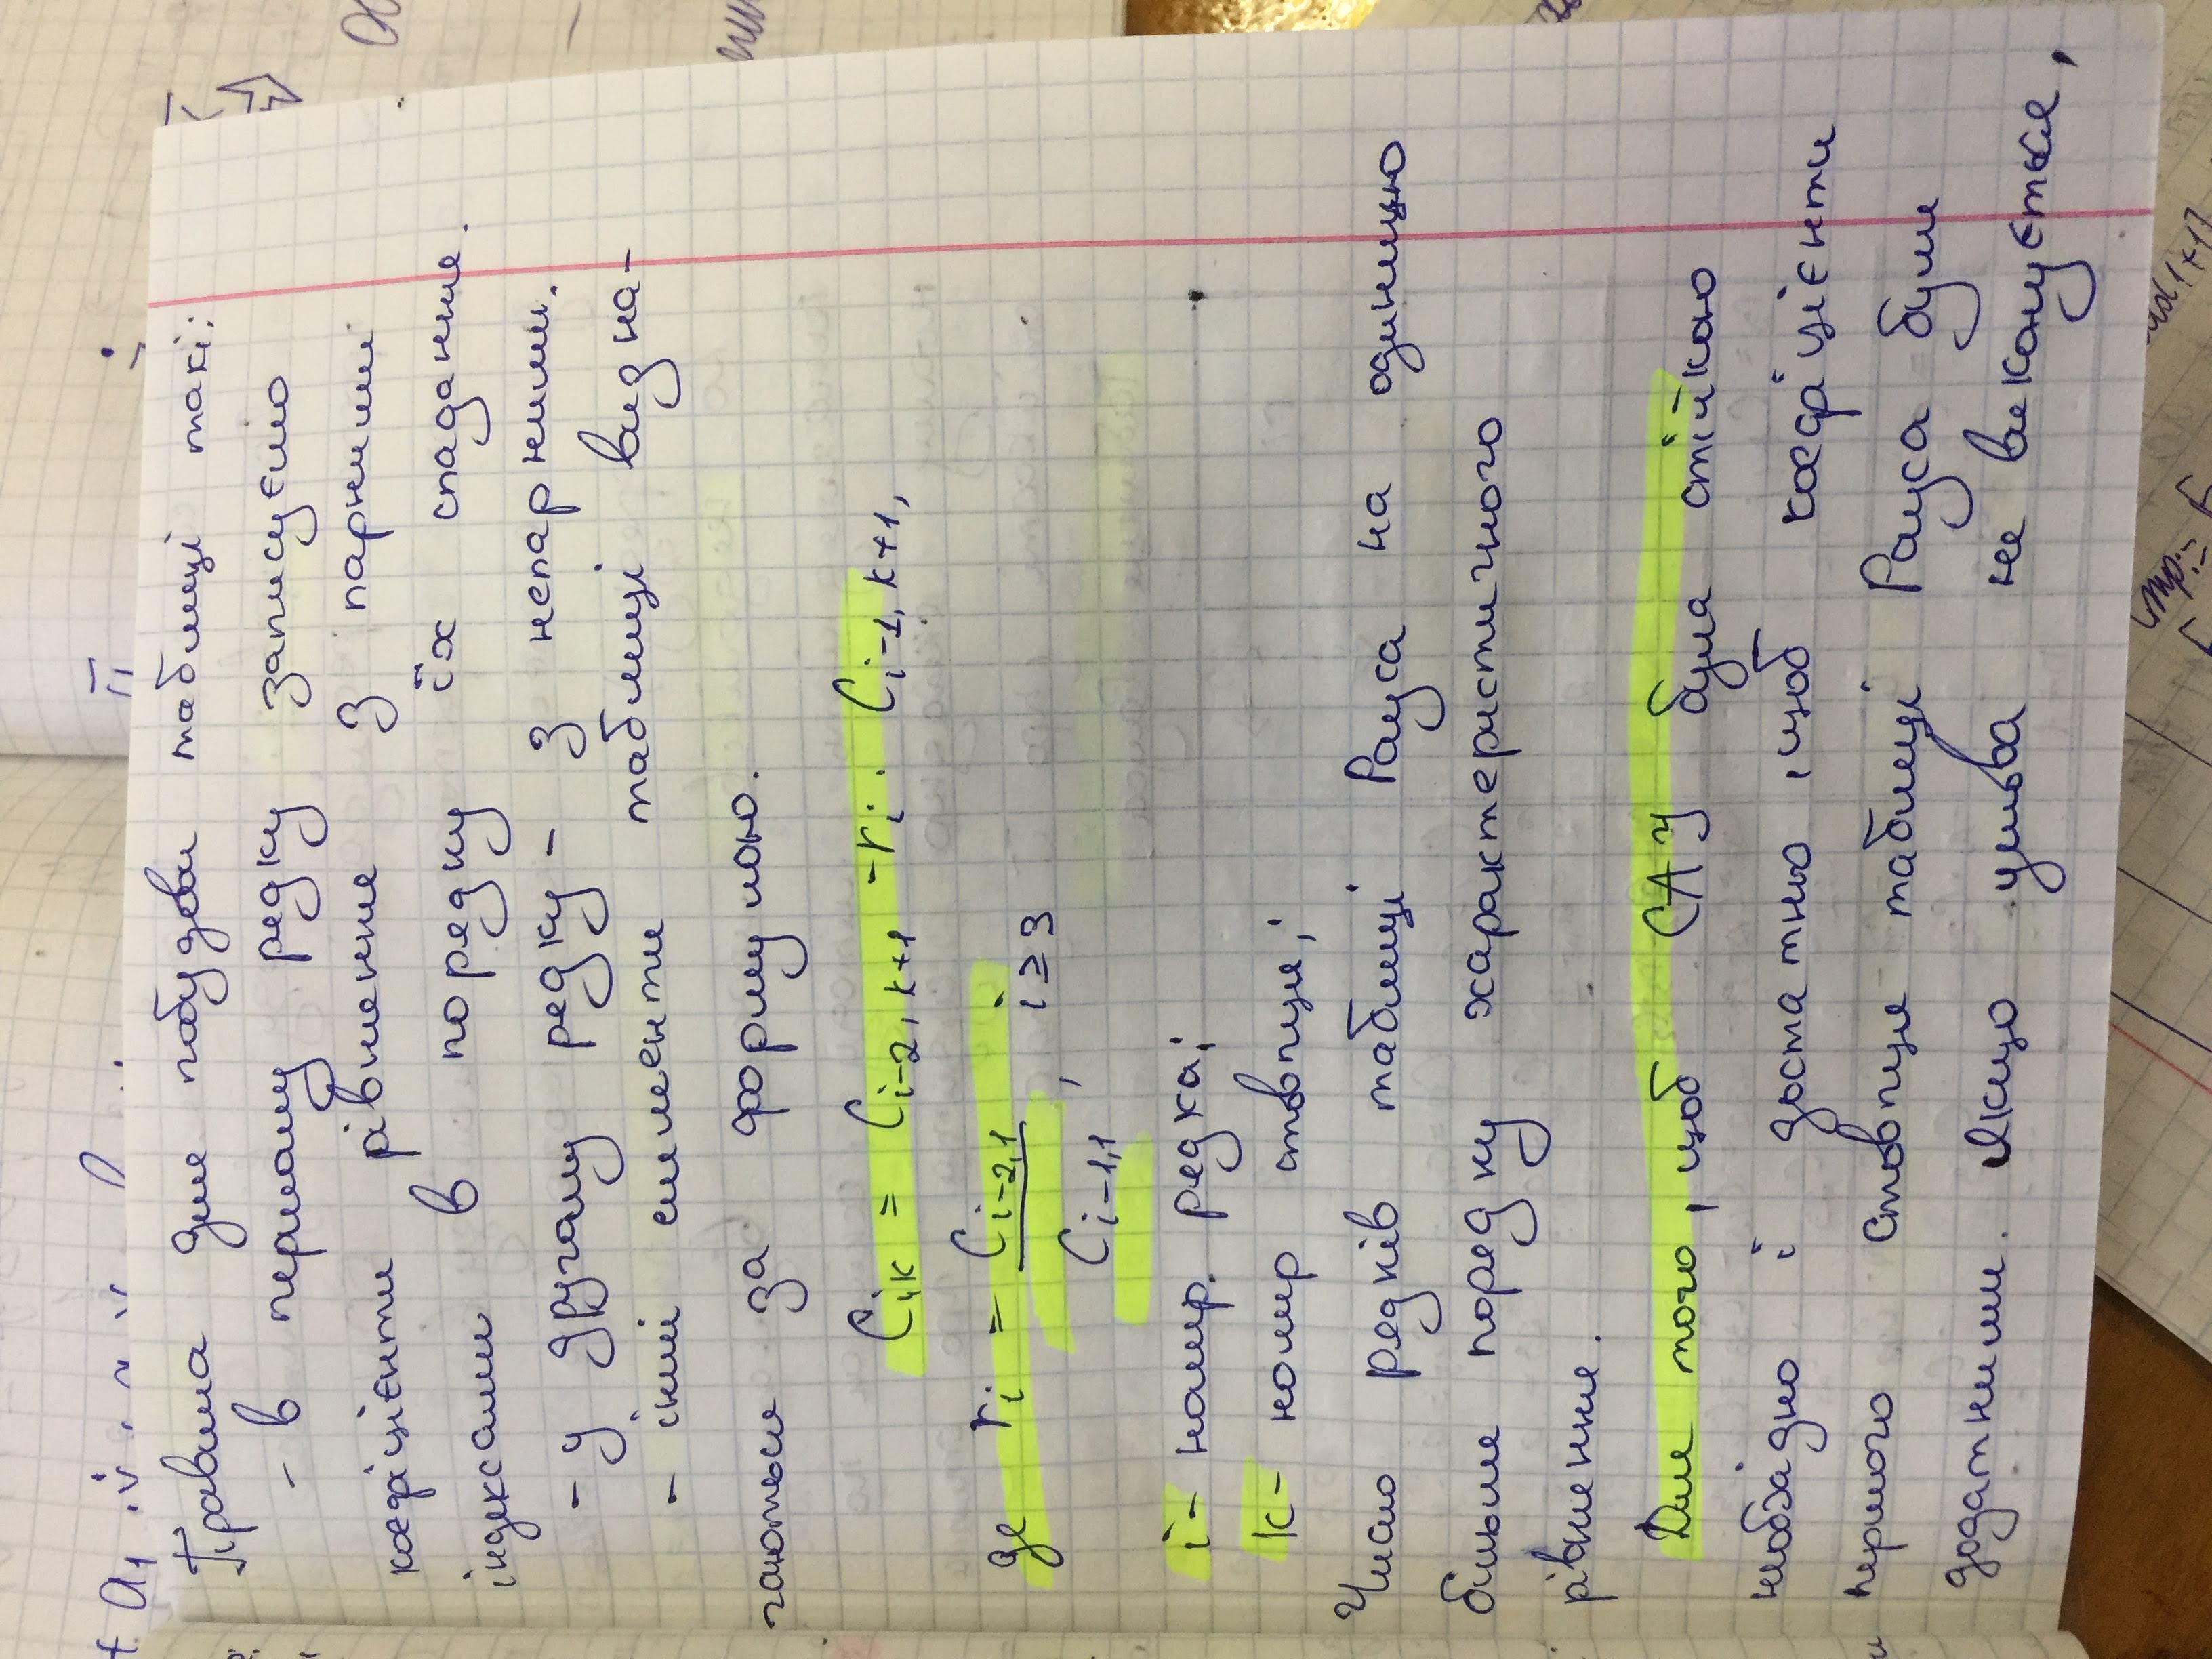 Правила для побудови таблиці такі:
- в першому рядку записуємо
коефіцієнти рівняння з парними
індексами в порядку їх спадання.
- у другому рядку - з непарними.
- інші елементи таблиці визна-
чаються за формулою.
Cᵢₖ = Cᵢ₋₂, ₖ₊₁ - rᵢ · Cᵢ₋₁, ₖ₊₁,
де rᵢ = Cᵢ₋₂,₁ / Cᵢ₋₁,₁ , i ≥ 3
i - номер. рядка;
k - номер стовпця;
Число рядків таблиці Рауса на одиницю
більше порядку характеристичного
рівняння.
Для того, щоб САУ була стійкою
необхідно і достатньо, щоб коефіцієнти
першого стовпця таблиці Рауса були
додатними. Якщо умова не виконується,